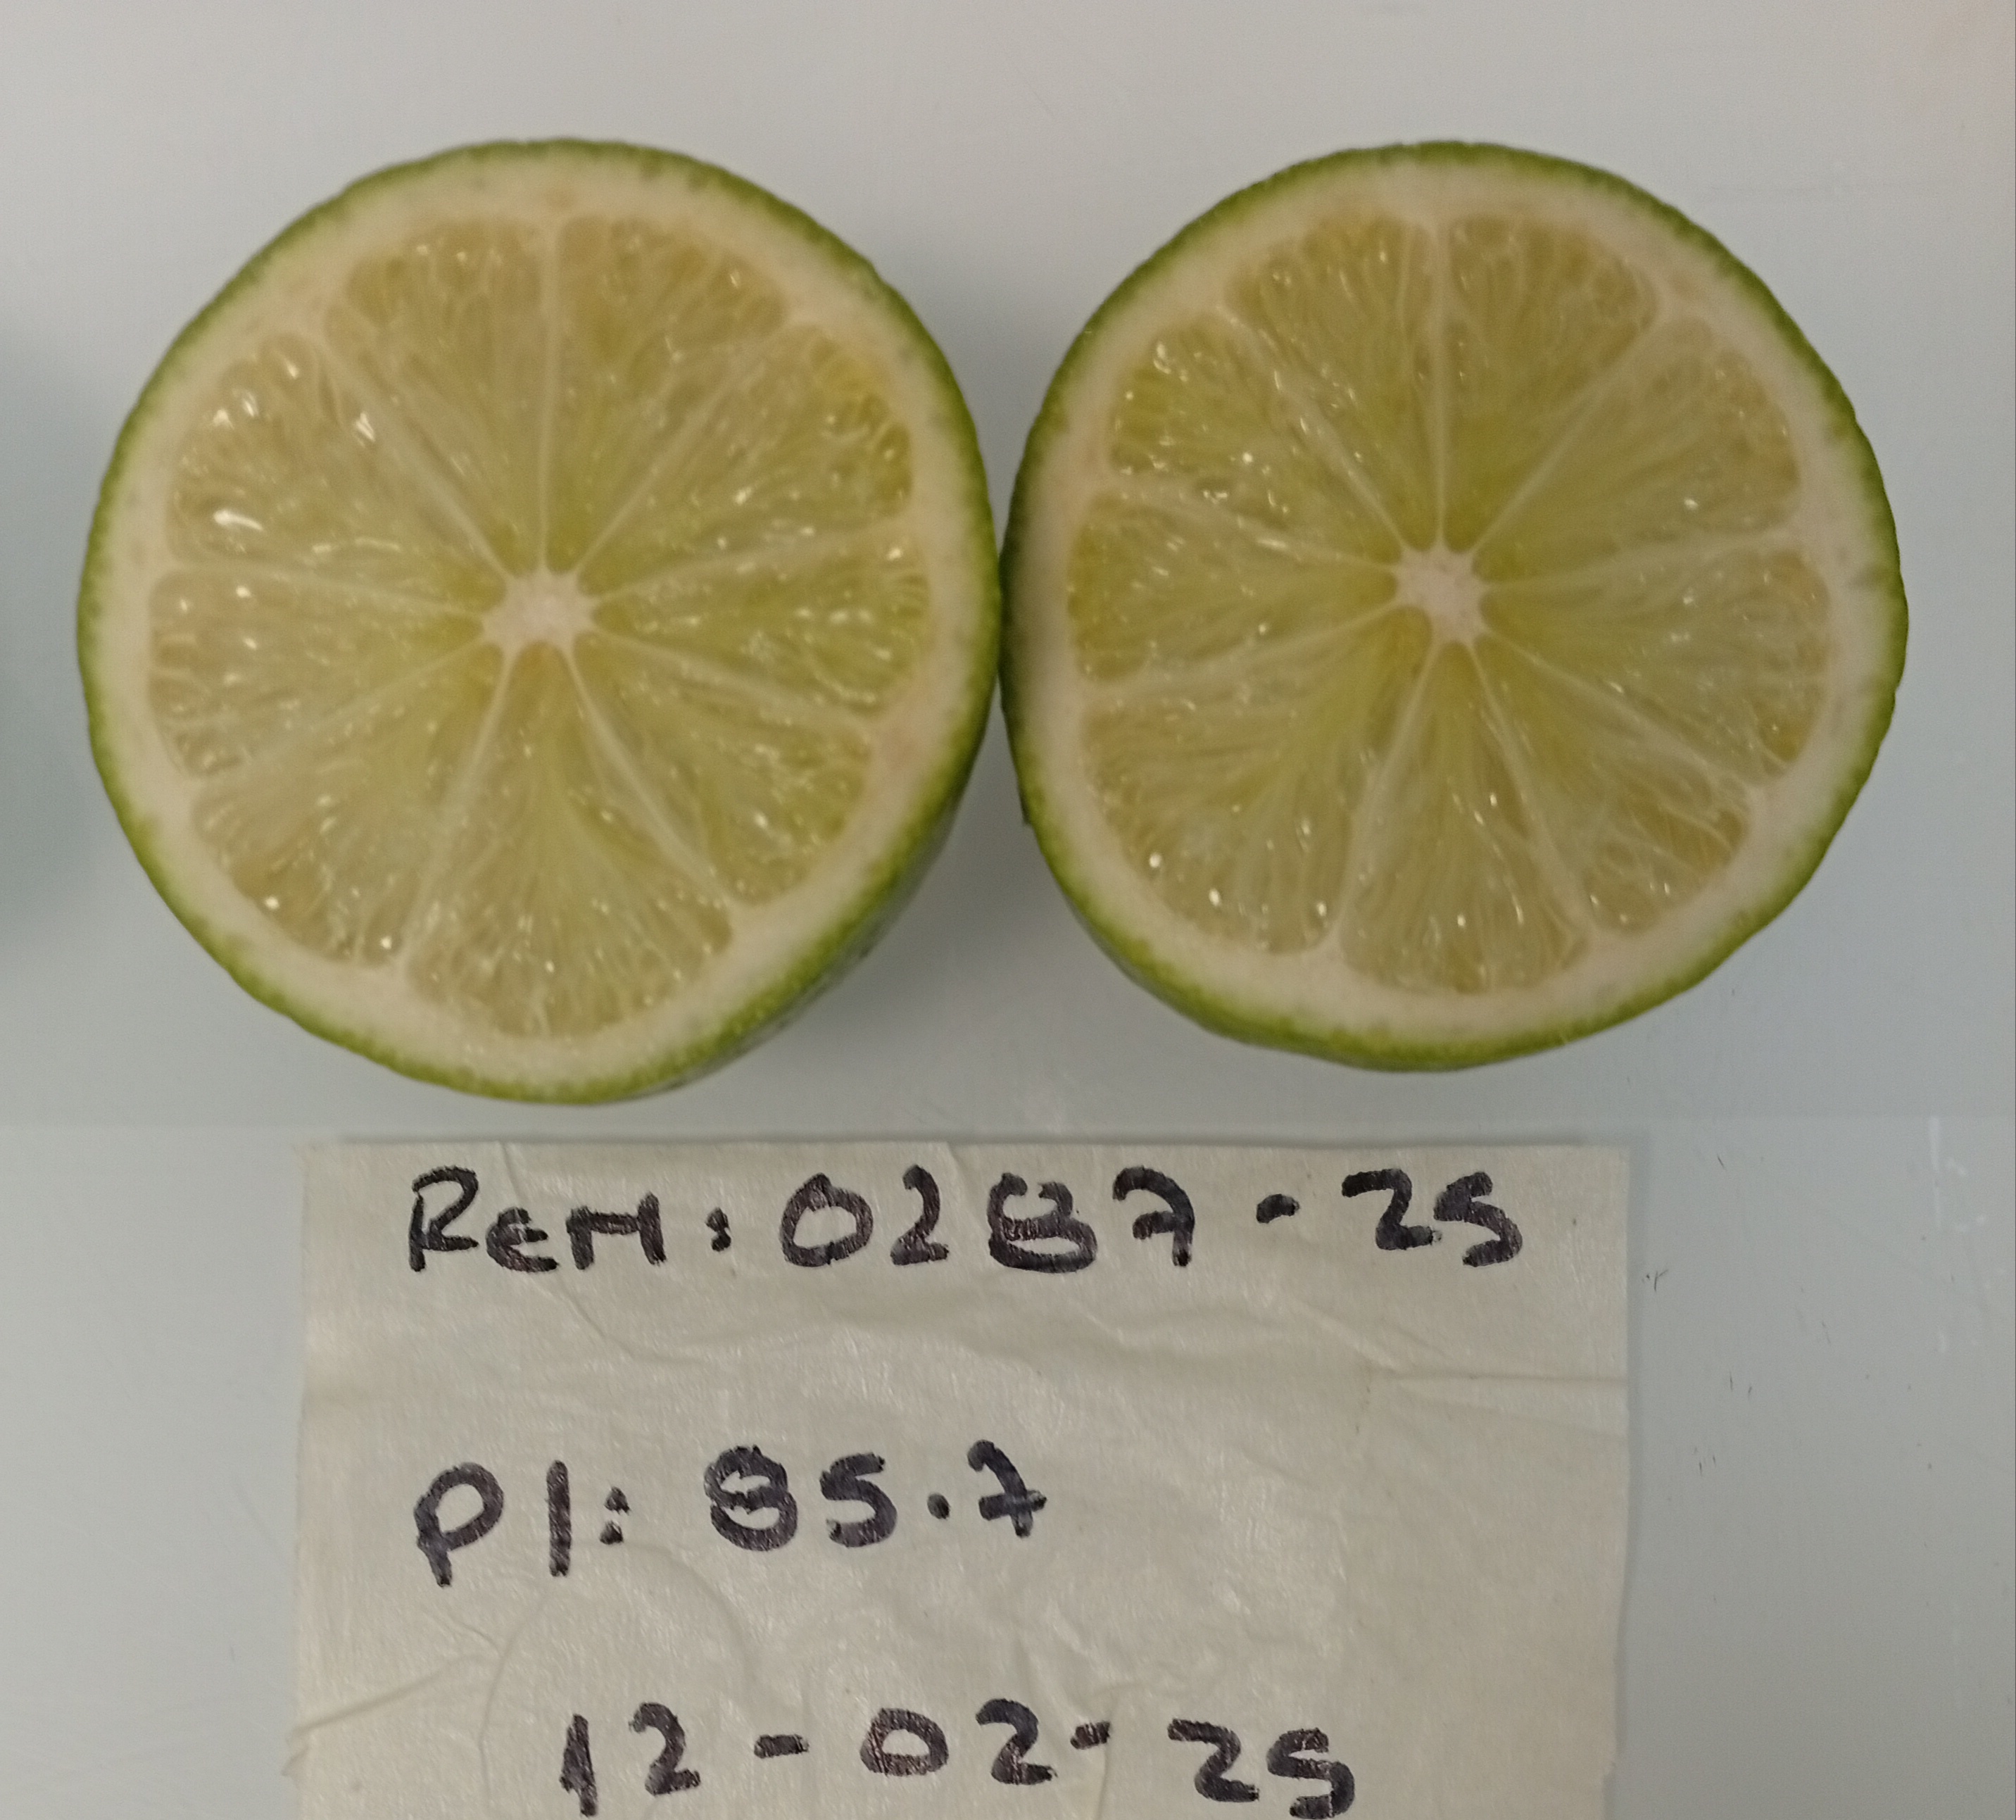 REM: 0287-25
P1: 85.7
12-02-25